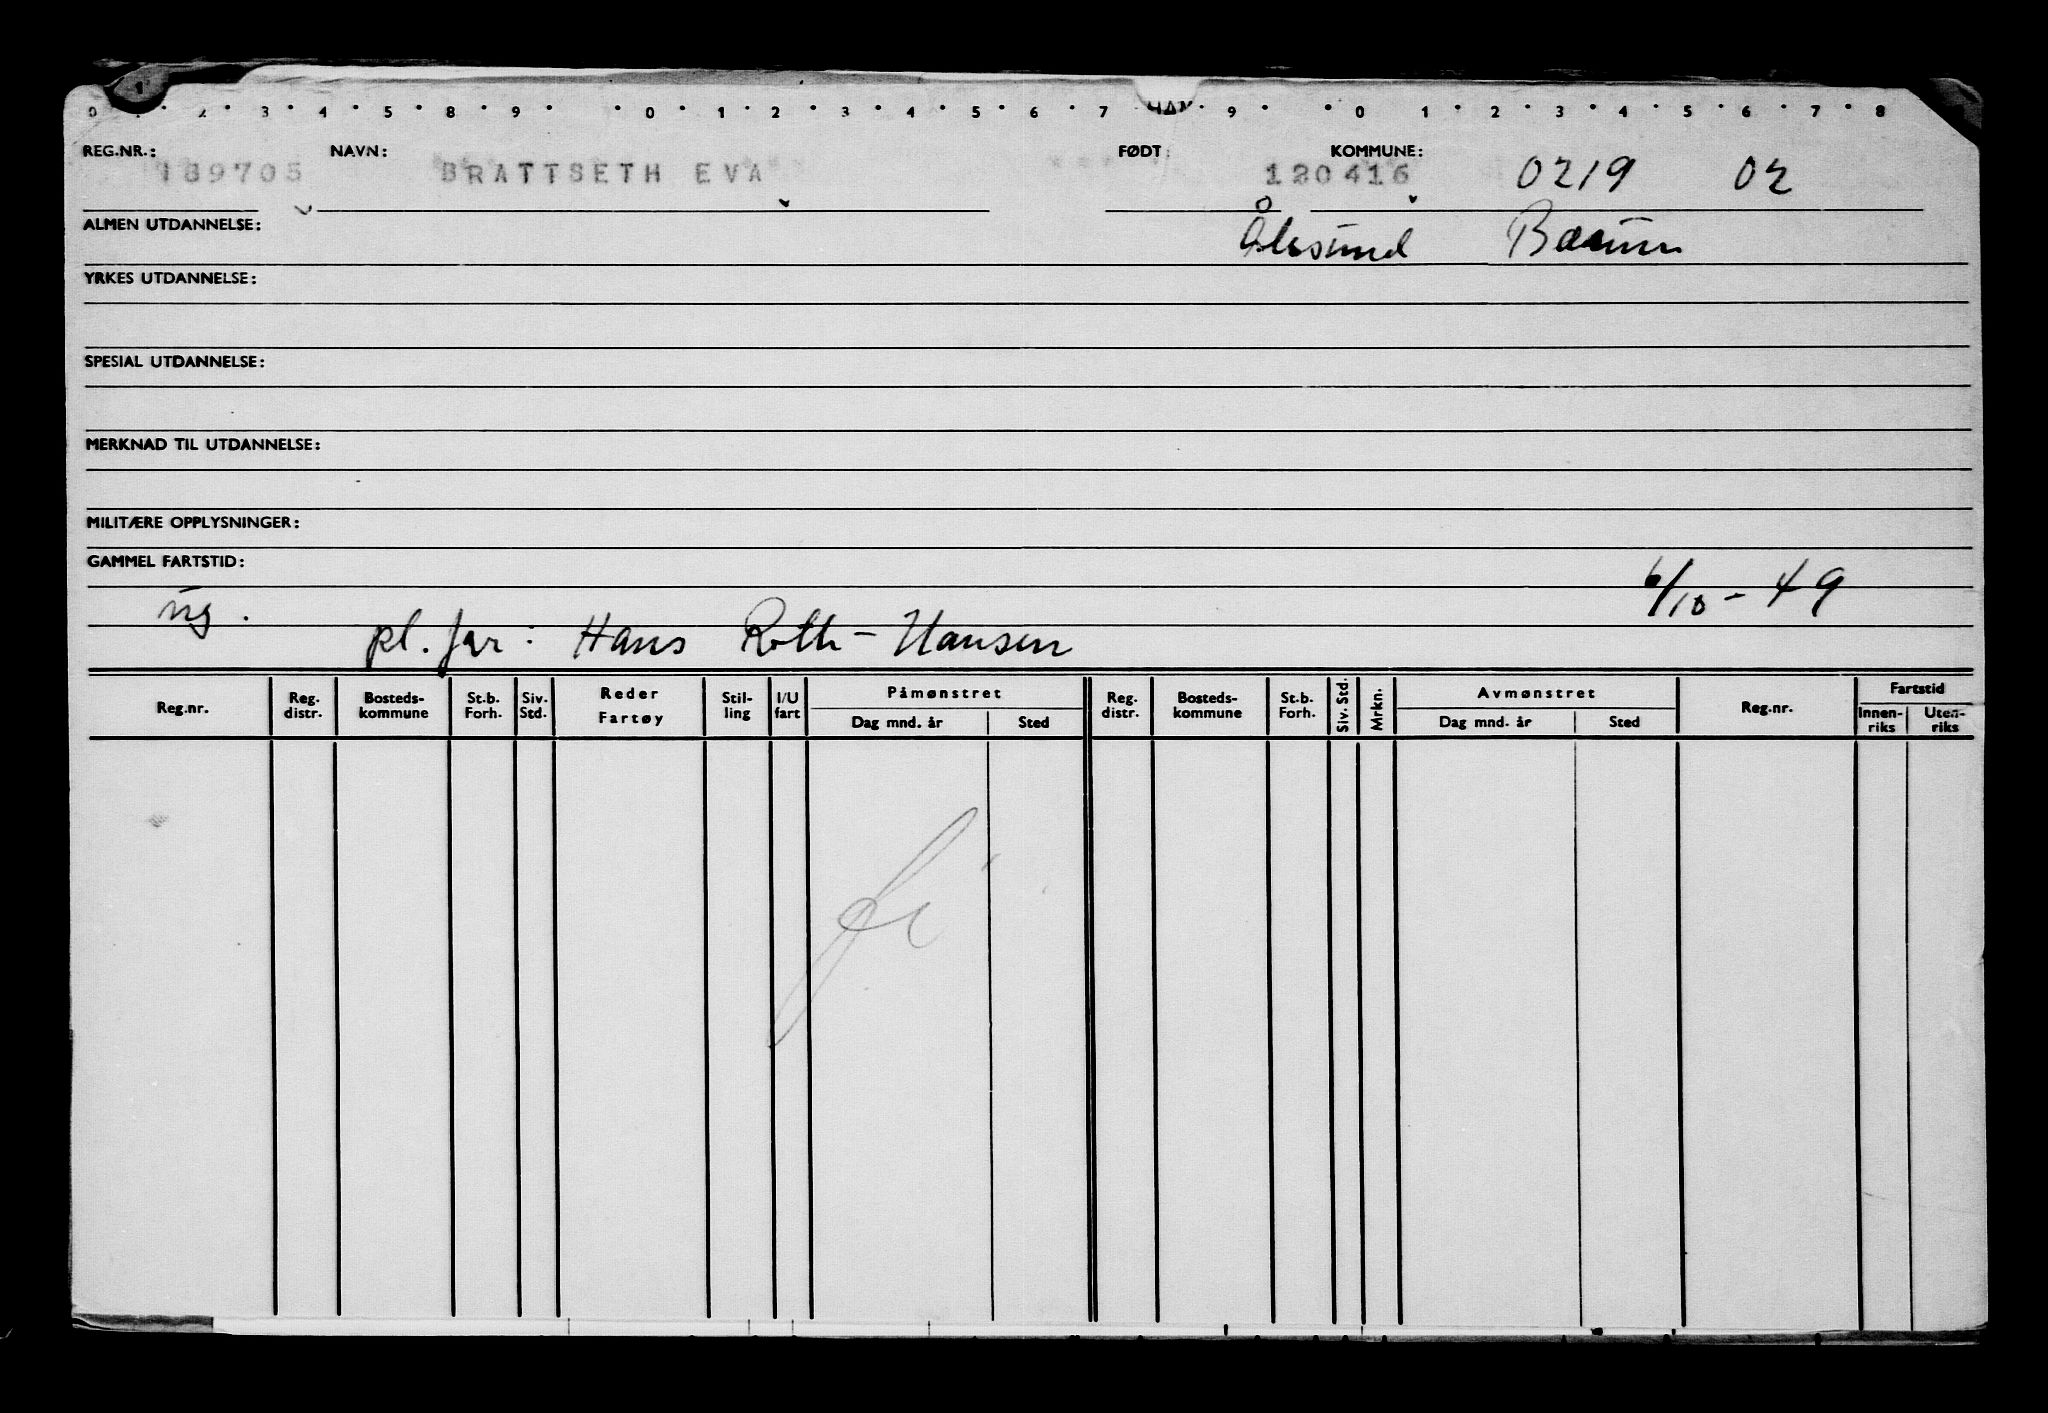 1
0 2 3 4 5 8 9 0 1 2 3 4 5 6 7 HAN 9 0 1 2 3 4 5 6 7 8
REG.NR.: NAVN: FØDT KOMMUNE:
189705 BRATTSETH EVA 120416 0219 02
ALMEN UTDANNELSE: Ålesund Bærum
YRKES UTDANNELSE:
SPESIAL UTDANNELSE:
MERKNAD TIL UTDANNELSE:
MILITÆRE OPPLYSNINGER:
GAMMEL FARTSTID:
ug. 6/10-49
pl. far: Hans Roth-Hansen
Reg.nr. Reg. distr. Bosteds-kommune St.b. Forh. Siv. Std. Reder Fartøy Stil-ling I/U fart Påmønstret Reg. distr. Bosteds-kommune St.b. Forh. Siv. Std. Mrkn. Avmønstret Reg.nr. Fartstid
Dag mnd. år Sted Dag mnd. år Sted Innen-riks Uten-riks